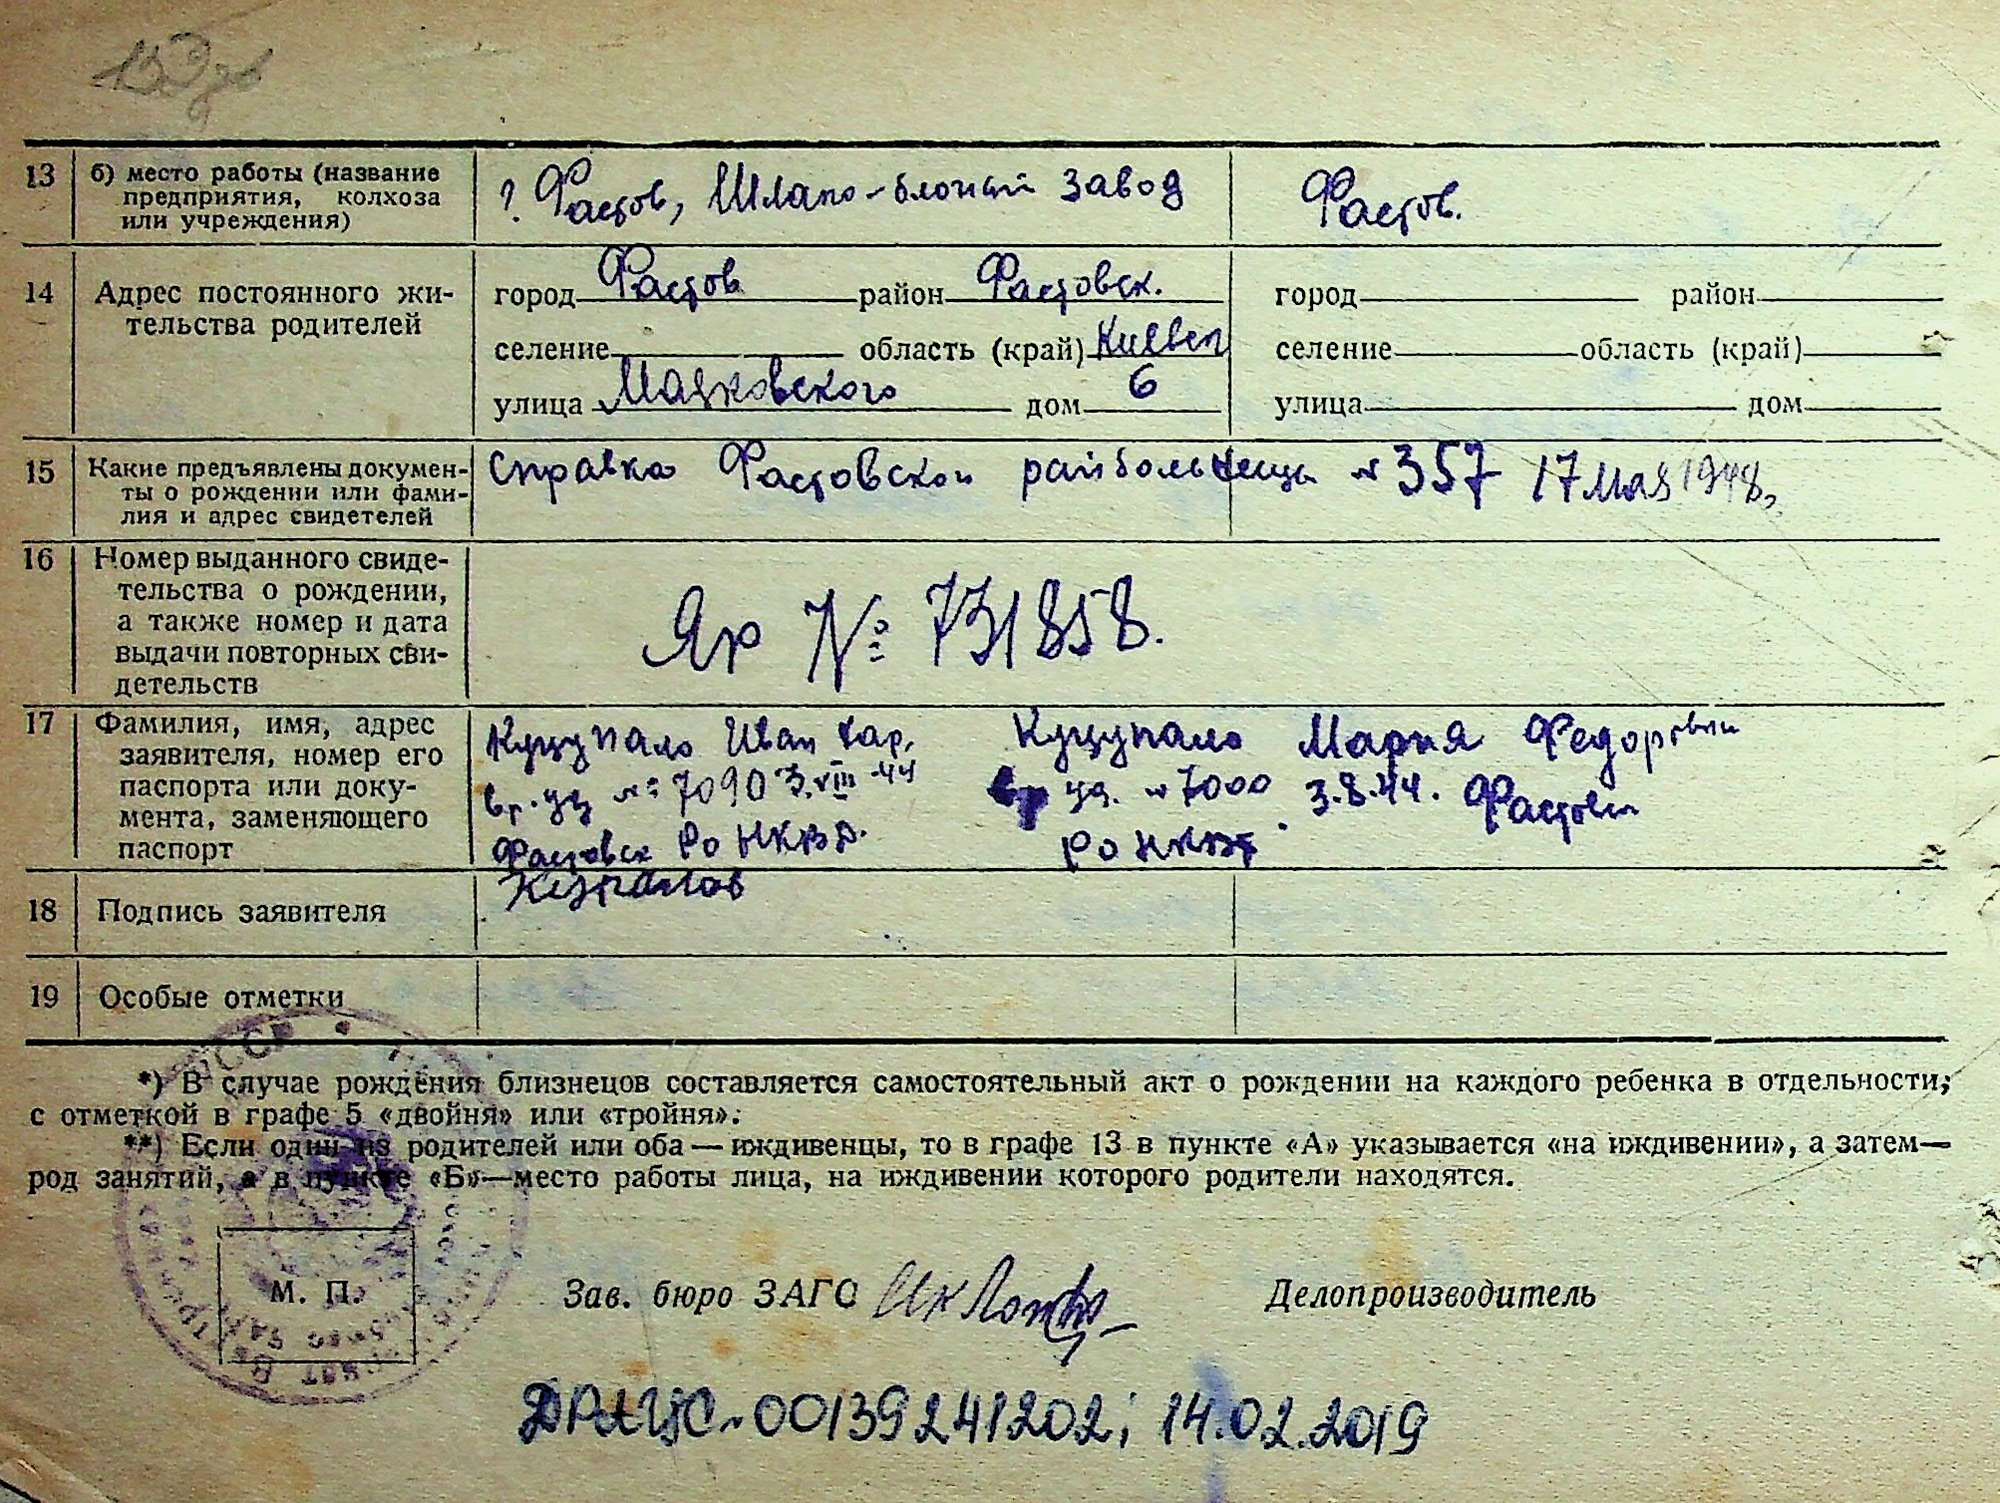 13 б) место работы (название
предприятия, колхоза
или учреждения)
г. Фастов, Шлако-блочный завод
Фастов.
14 Адрес постоянного жи-
тельства родителей
город Фастов район Фастовск.
селение область (край) Киевск
улица Маяковского дом 6
город район
селение область (край)
улица дом
15 Какие предъявлены докумен-
ты о рождении или фами-
лия и адрес свидетелей
справка Фастовской райбольницы № 357 17 мая 1948г.
16 Номер выданного свиде-
тельства о рождении,
а также номер и дата
выдачи повторных сви-
детельств
Яр № 731858.
17 Фамилия, имя, адрес
заявителя, номер его
паспорта или доку-
мента, заменяющего
паспорт
Куцупало Иван Хар.
вр. уд № 7090 3.VIII-44
Фастовск РО НКВД.
Куцупало Мария Федоровны
вр уд. № 7000 3.8.44. Фастовск
РО НКВД
18 Подпись заявителя
19 Особые отметки
*) В случае рождения близнецов составляется самостоятельный акт о рождении на каждого ребенка в отдельности,
с отметкой в графе 5 «двойня» или «тройня».
**) Если один из родителей или оба—иждивенцы, то в графе 13 в пункте «А» указывается «на иждивении», а затем—
род занятий, а в пункте «Б»—место работы лица, на иждивении которого родители находятся.
М. П.
Зав. бюро ЗАГС
Делопроизводитель
ДРАЦС-00139241202; 14.02.2019